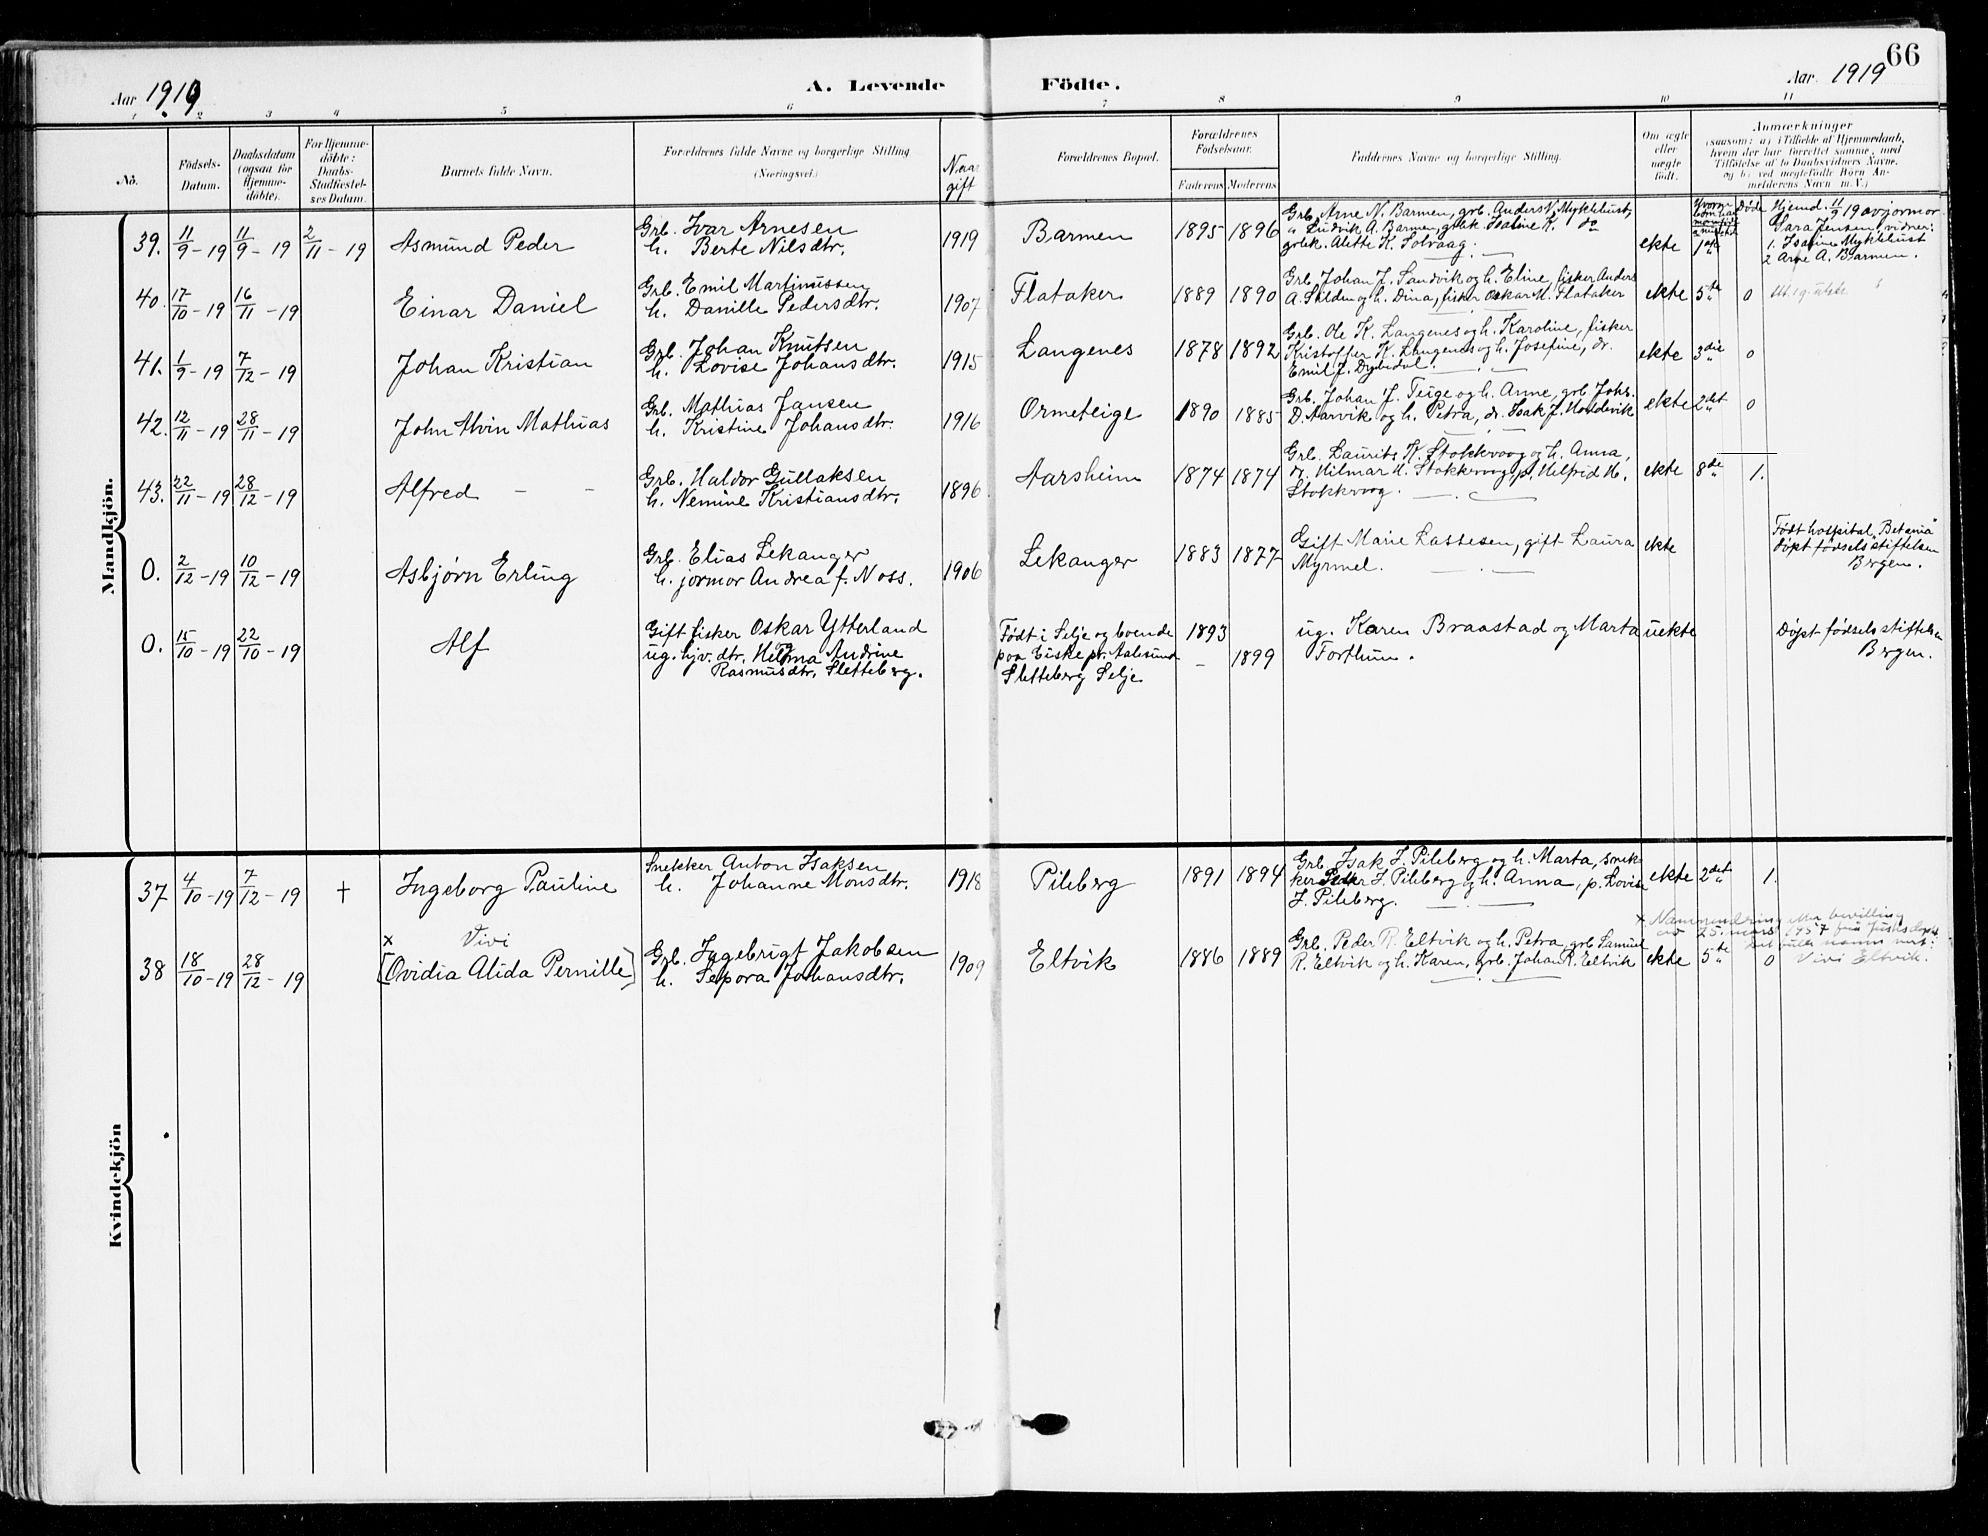 66
Aar 1919
A. Levende Födte.
Aar. 1919
1 2 3 4 5 6 7 8 9 10 11
No.
Födsels-
Datum.
Daabsdatum
(ogsaa for
Hjemme-
döbte).
For Hjemme-
döbte:
Daabs-
Stadfæstel-
ses Datum.
Barnets fulde Navn.
Forældrenes fulde Navne og borgerlige Stilling
(Næringsvei.)
Naar
gift
Forældrenes Bopæl.
Forældrenes
Födselsaar.
Faderens Moderens
Faddernes Navne og borgerlige Stilling.
Om ægte
eller
uægte
födt.
Anmærkninger
(saasom: a) i Tilfælde af Hjemmedaab,
hvem der har forrettet samme, med
Tilföielse af to Daabsvidners Navne,
og b) ved uægtefödte Börn An-
melderens Navn m. V.)
Mandkjön.
39. 11/9 - 19 11/9 - 19 2/11 - 19 Asmund Peder
Grb. Ivar Arnesen
h. Berte Nilsdtr.
1919 Barmen 1895 1896
Grb. Arne N. Barmen, grb. Anders N. Myklebust,
" Ludvik A. Barmen, gbk. Isaline K. do
grbk. Alette K. Solvaag.
ekte 1ste
Døde
Hjemd. 11/9 19 av jormor
Sara Jensen, vidner:
1. Isaline Myklebust
2 Arne A. Barmen.
40. 17/10 - 19 16/11 - 19 Einar Daniel
Grb. Emil Martinussen
h. Danille Pedersdtr.
1907 Flataker 1889 1890
Grb. Johan J. Sandvik og h. Eline, fisker Anders
A. Silden og h. Dina, fisker Oskar M. Flataker
ekte 5te 0
41. 1/9 - 19 7/12 - 19 Johan Kristian
Grb. Johan Knutsen
h. Lovise Johansdtr.
1915 Langenes 1878 1892
Grb. Ole K. Langenes og h. Karoline, fisker
Kristoffer K. Langenes og h. Josefine, dr.
Emil J. Dybedal.
ekte 3die 0
42. 12/11 - 19 28/11 - 19 John Alvin Mathias
Grb. Mathias Jansen
h. Kristine Johansdtr.
1916 Ormeteige 1890 1885
Grb. Johan J. Teige og h. Anne, grb Johs.
D. Aarvik og h. Petra, dr. Isak J. Hoddevik
ekte 2det 0
43. 22/11 - 19 28/12 - 19 Alfred - -
Grb. Haldor Gullaksen
h. Nemine Kristiansdtr.
1896 Aarsheim 1874 1874
Grb. Laurits K. Stokkvaag og h. Anna,
dg. Hilmar H. Stokkevaag, p. Helfrid H.
Stokkvaag.
ekte 8de 1.
0. 2/12 - 19 10/12 - 19 Asbjørn Erling
Grb. Elias Lekanger
h. jormor Andrea f. Noss.
1906 Lekanger 1883 1877
Gift Marie Lassesen, gift Laura
Myrmel.
ekte
Født hospital "Betania"
døpt fødselsstiftelsen
Bergen.
0. 15/10 - 19 22/10 - 19 Alf
Gift fisker Oskar Ytterland
og
ug. hjv. dtr. Helma Andrine
Rasmusdtr. Sletteberg.
Født i Selje og boende
paa Giske pr. Aalesund
Sletteberg Selje
1893
- 1899
ug. Karen Braastad og Marta
Forthun.
uekte
Døpt fødselsstiftelsen
Bergen.
Kvindekjön
37 4/10 - 19 7/12 - 19 + Ingeborg Pauline
Snekker Anton Isaksen
h. Johanne Monsdtr.
1918 Pileberg 1891 1894
Grb. Isak J. Pileberg og h. Marta, snek-
ker Peder I. Pileberg og h. Anna, p. Lovise
I. Pileberg.
ekte 2det 1.
38 18/10 - 19 28/12 - 19
x Vivi
[Ovidia Alida Pernille]
Grb. Ingebrigt Jakobsen
h. Sepora Johansdtr.
1909 Eltvik 1886 1889
Grb. Peder R. Eltvik og h. Petra, grb Samuel
R. Eltvik og h. Karen, grb. Johan R. Eltvik
ekte 5te 0
x Namneendring etter bevilling
av 25. mars 1957 frå
fulle namn vert:
Vivi Eltvik.